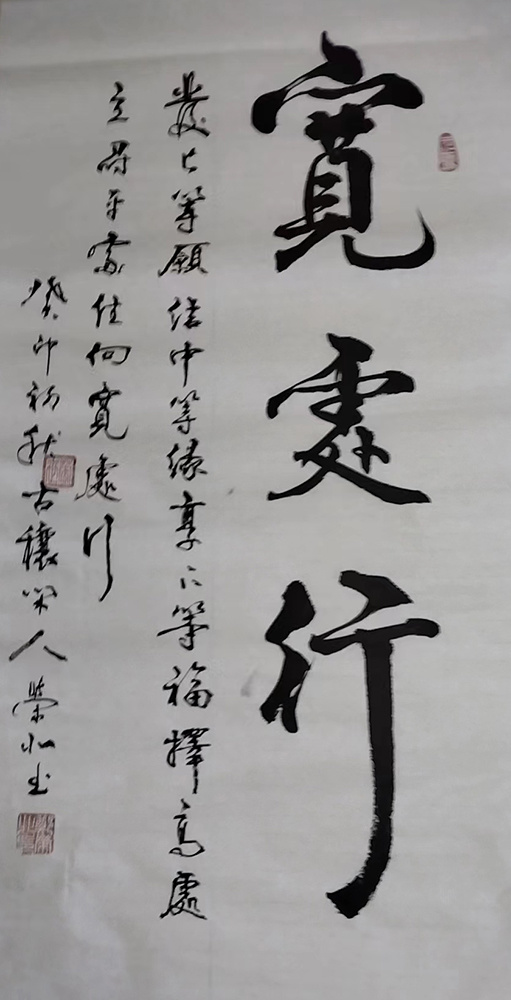 寬處行
發上等願結中等緣享下等福擇高處
立尋平處住向寬處行
癸卯初秋古穰閑人榮